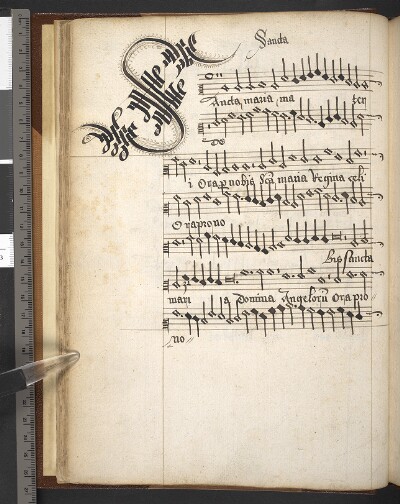 Sancta
Ancta maria ma ter
de
i Ora p nobis Scā maria Regina celi
O ra pro no
bis Sancta
mari a Domina Angelorū Ora pro
no